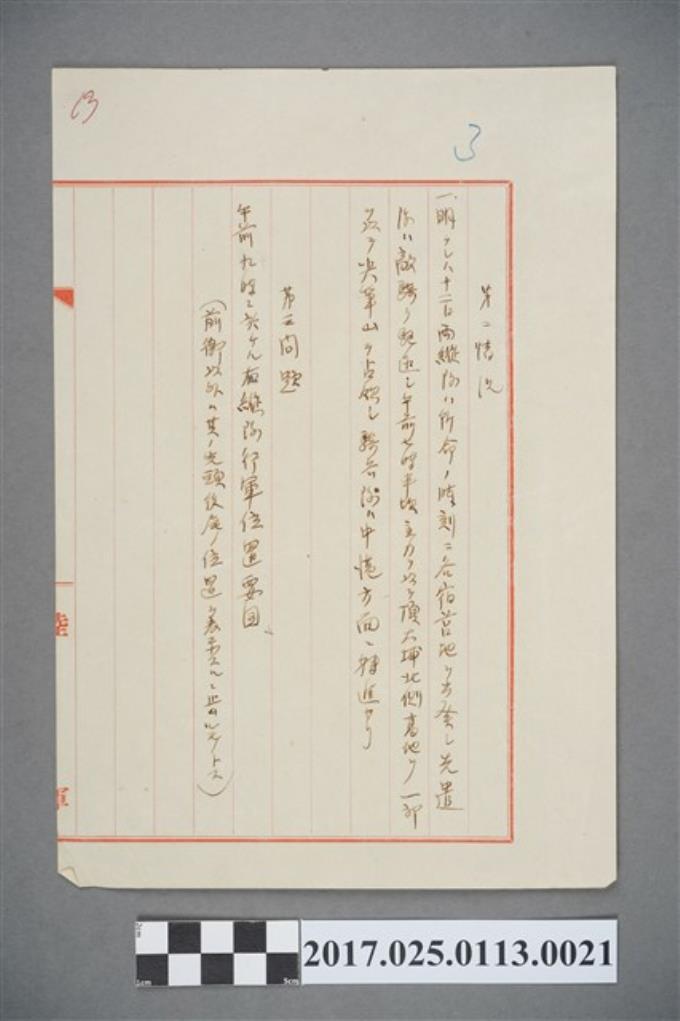 13
3
第二情況
一、明クレハ十二日両縦隊ハ所命ノ時刻ニ各宿営地ヲ出発シ先遣
隊ハ敵騎ヲ駆逐シ午前七時半頃主力ヲ以テ頂大埔北側高地ヲ一部
ヲ以テ尖筆山ヲ占領シ騎兵隊ハ中港方面ニ転進セリ
第三問題
午前九時ニ於ケル右縦隊行軍位置要図
(前衛以外ハ其ノ先頭後尾ノ位置ヲ表示スルニ止ムルモノトス)
陸
軍
2cm
1cm
5cm
2017.025.0113.0021